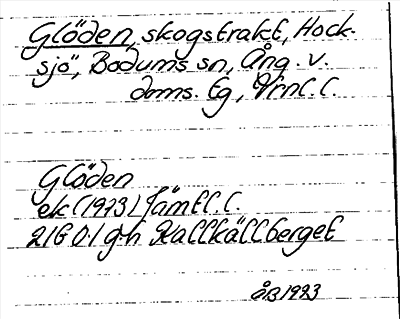 Glöden, skogstrakt, Hock-
sjö, Bodums sn, Ång. v.
doms. Eg, Vrnl.l.
Glöden
ek (1973) Jämtl. l.
21G 0i g-h Kallkällberget
ÅB 1973